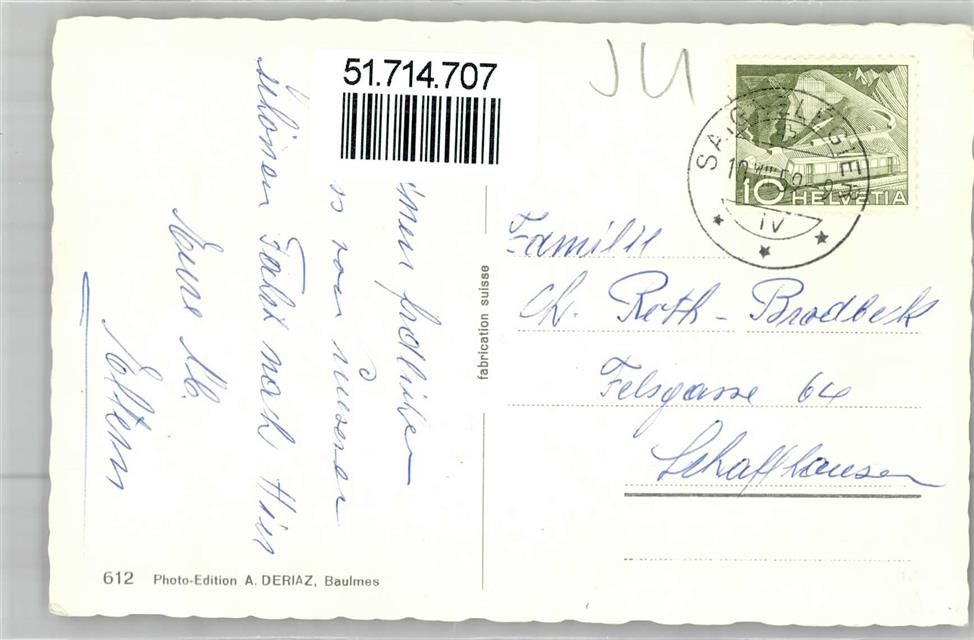 51.714.707
JU
SAIGNELEGIER
10 HELVETIA
IV
Familie
Ch. Roth - Brodbeck
Felsgasse 64
Schaffhausen
fabrication suisse
lieben
von unserer
schönen Fahrt nach Hier
Eure lb.
Eltern
612 Photo-Edition A. DERIAZ, Baulmes